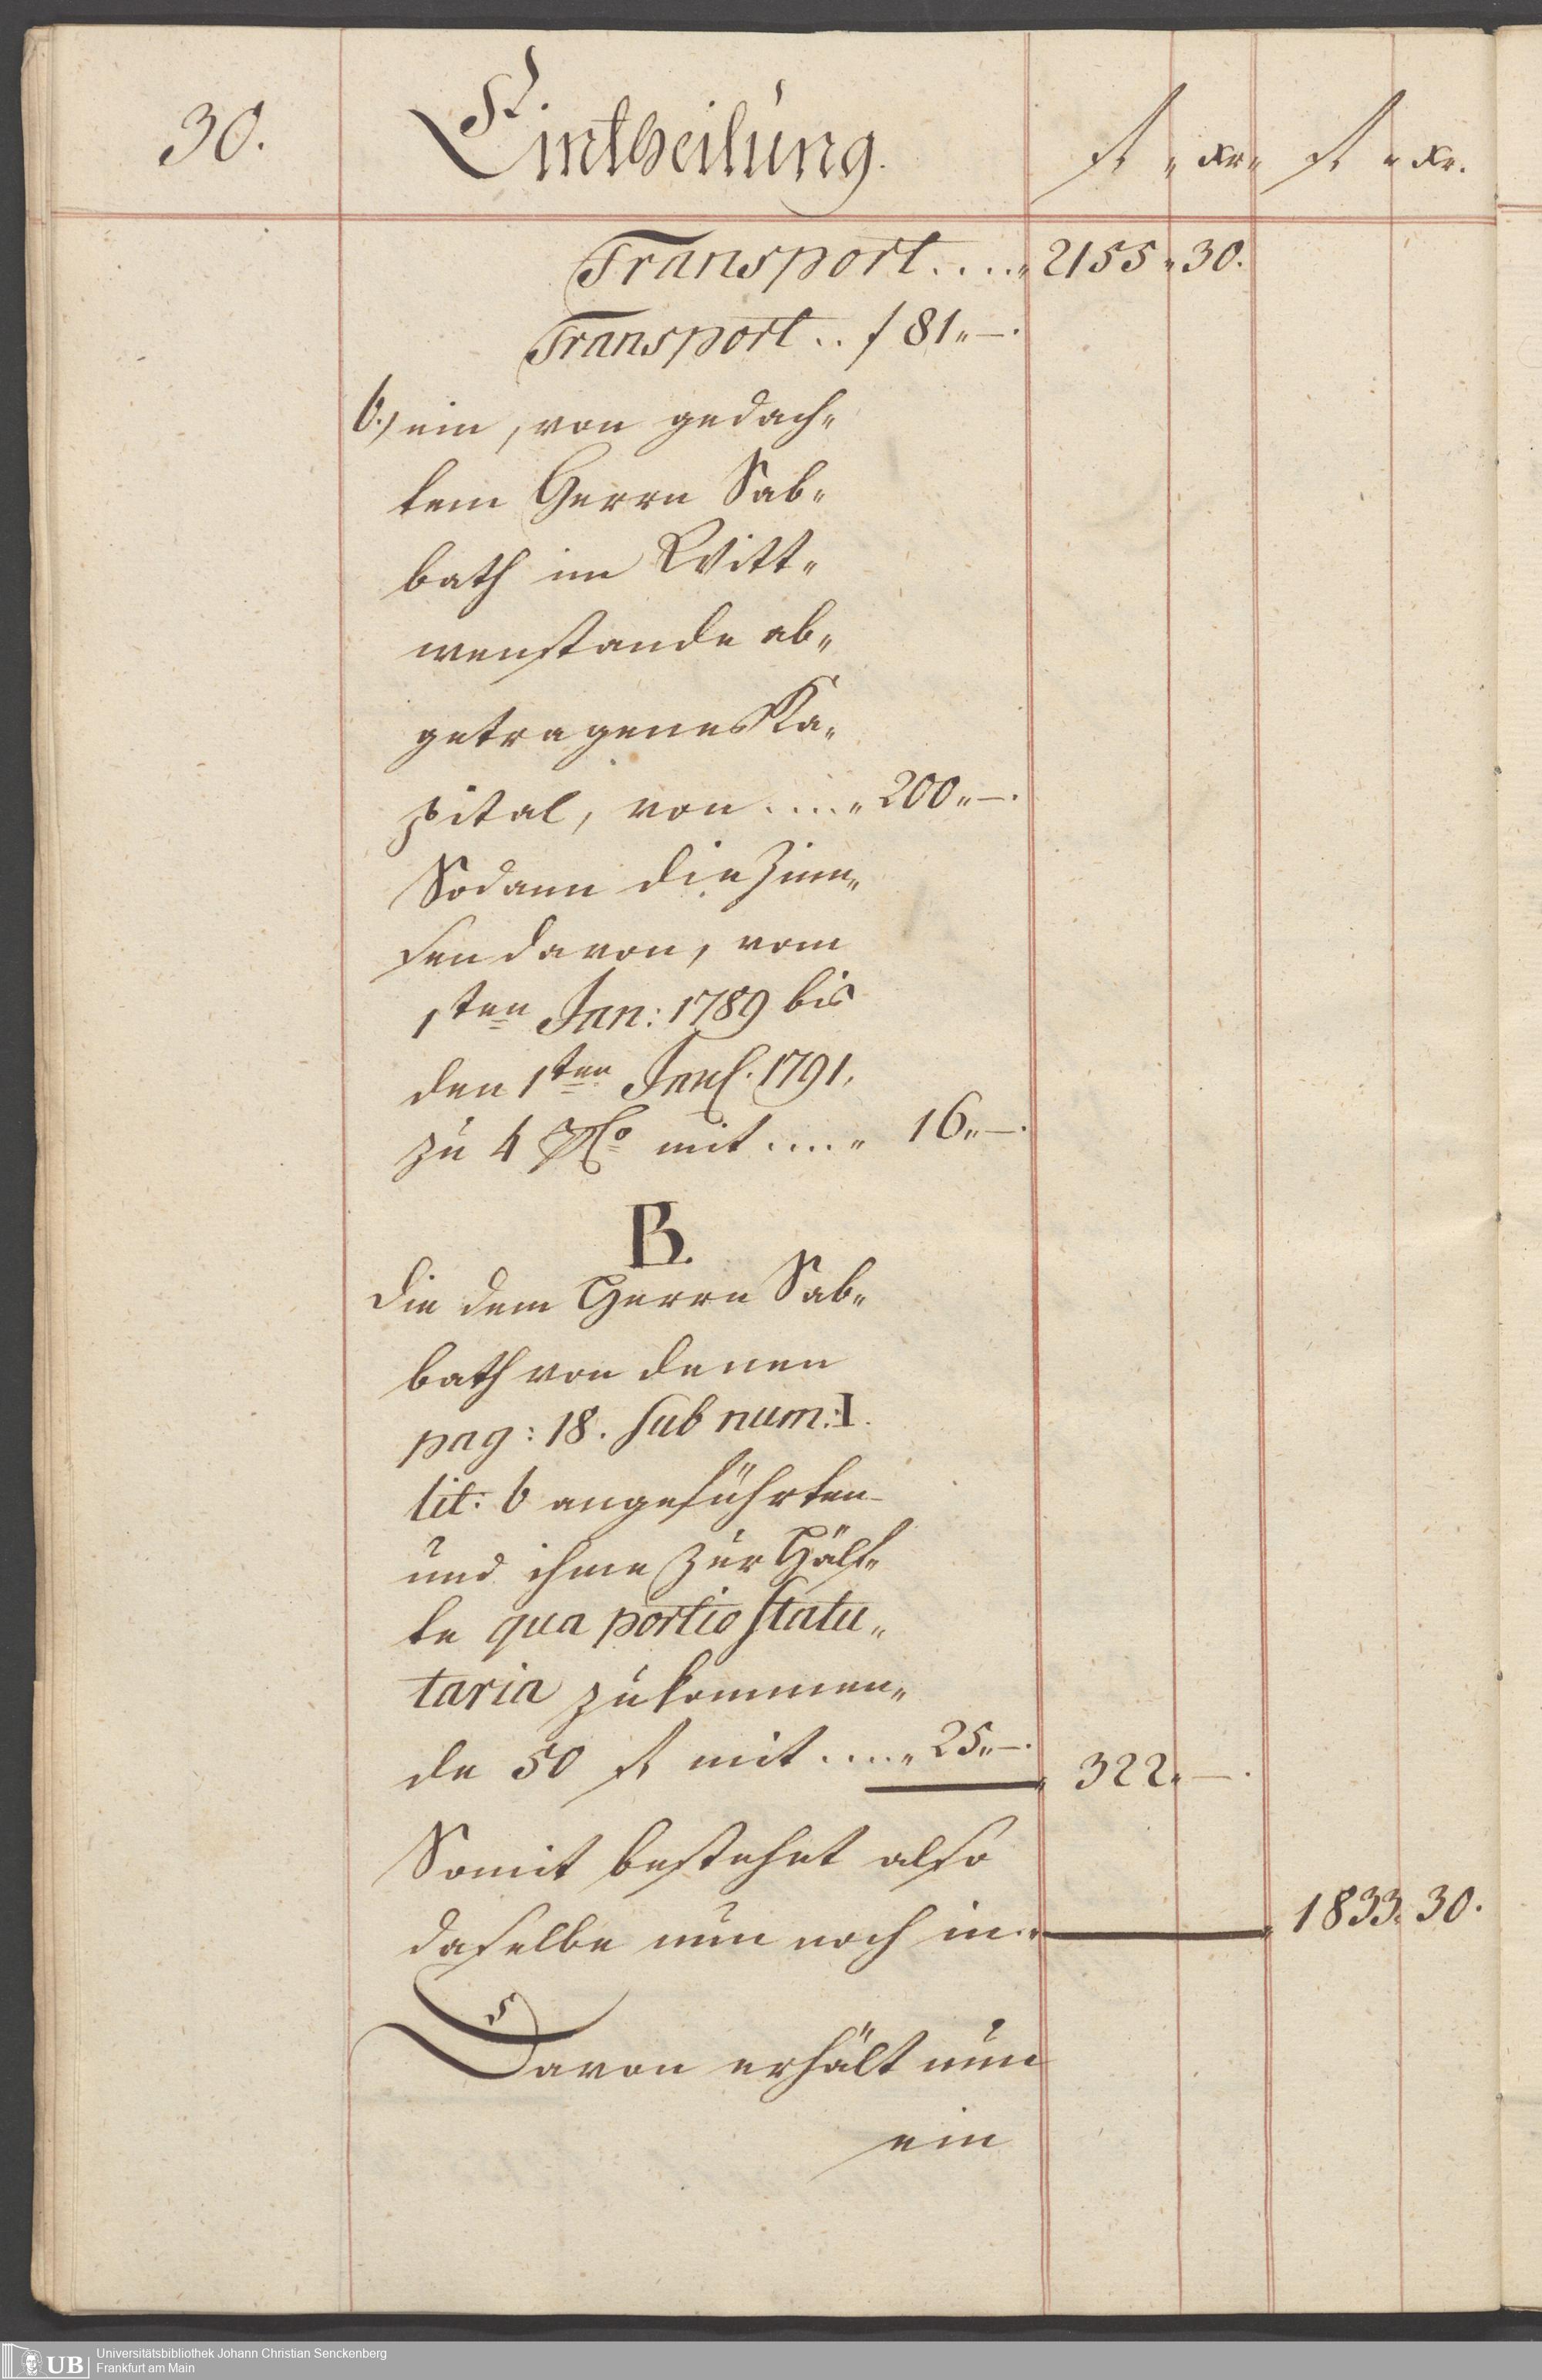 30.
Eintheilung.
fl „ xr „ fl „ xr.
Transport.... „ 2155 „ 30.
Transport.. f 81 „ —.
b.) ein, von gedach„
tem Herrn Sab„
bath im Witt„
wenstande ab„
getragenes Ka„
pital, von .... „ 200 „ —.
Sodann die Zinn„
sen davon, vom
1ten Jan: 1789 bis
den 1ten 1791.
zu 4 mit .... „ 16 „ —.
B.
die dem Herrn Sab„
bath von denen
pag: 18. sub num: I.
lit: b angeführten
und ihme zur Hälf„
te qua portio statu„
taria zukommen„
de 50 fl mit .... „ 25 „ —.
„ 322 „ —.
Somit bestehet also
daselbe nun noch in .. „ 1833 „ 30.
Davon erhält nun
ein
UB
Universitätsbibliothek Johann Christian Senckenberg
Frankfurt am Main